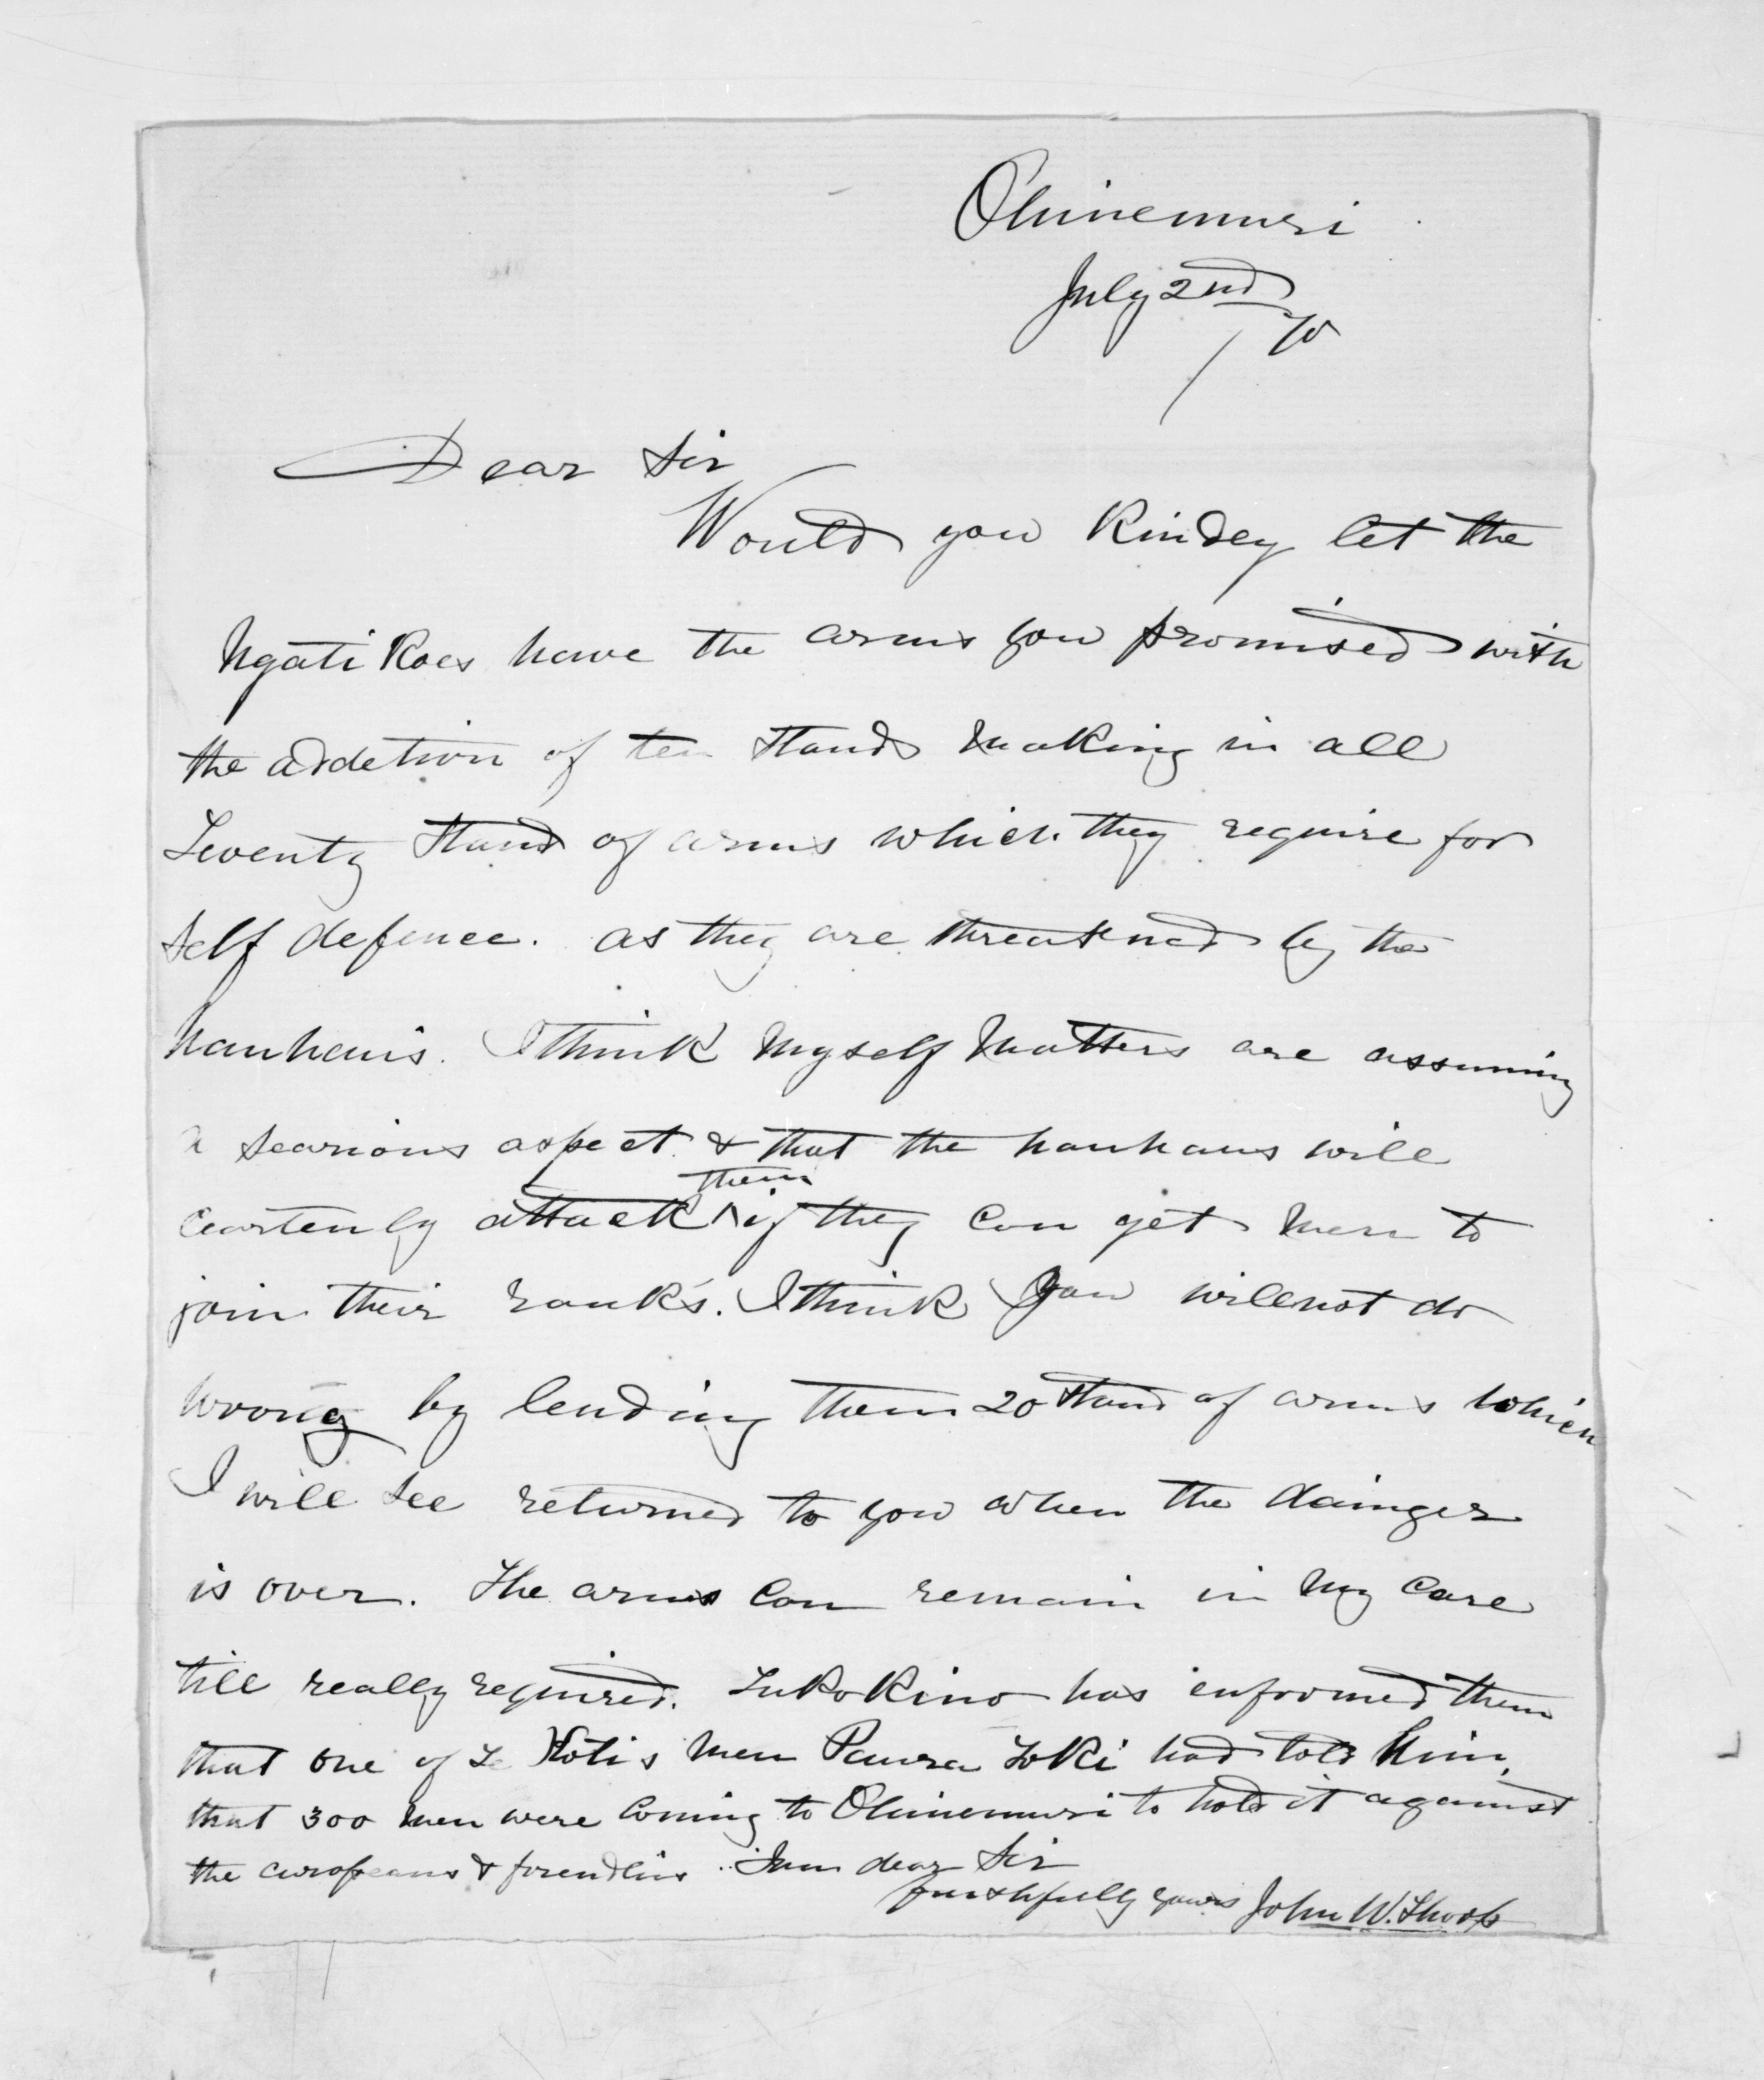 Ohinemuri
July 2nd
/70
Dear Sir
Would you Kindey let the
Ngati Koes have the arms you promised with
the addetion of ten stands making in all
Twenty stand of arms which they require for
self defence. as they are threatned by the
hauhauis. I think myself matters are assuming
a searious aspect & that the hauhaus will
ceartenly attack them if they can get men to
join their ranks. I think you will not do
wrong by lending them 20 stand of arms which
I will see returned to you when the dainger
is over. The arms can remain in my care
till really required. Tukokino has enformed them
that one of Te Kotis men Paura Toki had told him,
that 300 men were coming to Ohinemuri to hold it against
the europeans & friendlis. I am dear Sir
faithfully yours John W. Thorp